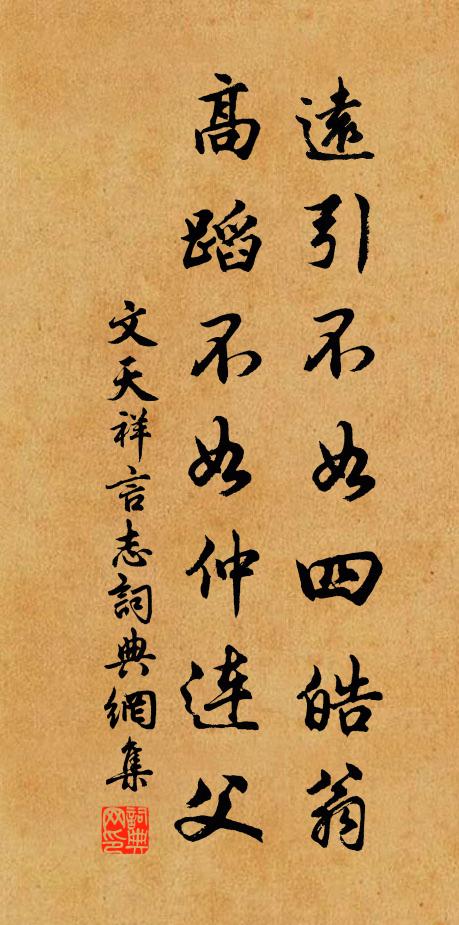 遠引不如四皓翁
高蹈不如仲連父
文天祥言志詞典網集
詞典网印